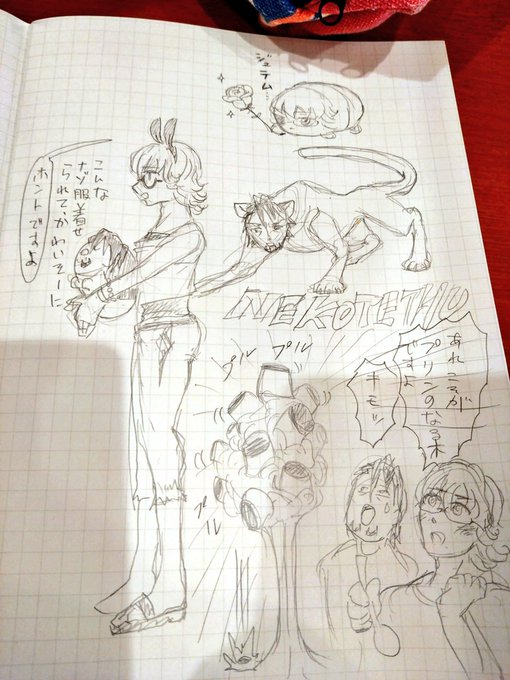 ジュテム…
こんな
ナゾ服着せ
られて、かわいそーに
ホントですよ
NEKOTETHU
あれこそが
プリンのなる木
ですよ
キモッ
プル
プル
プル